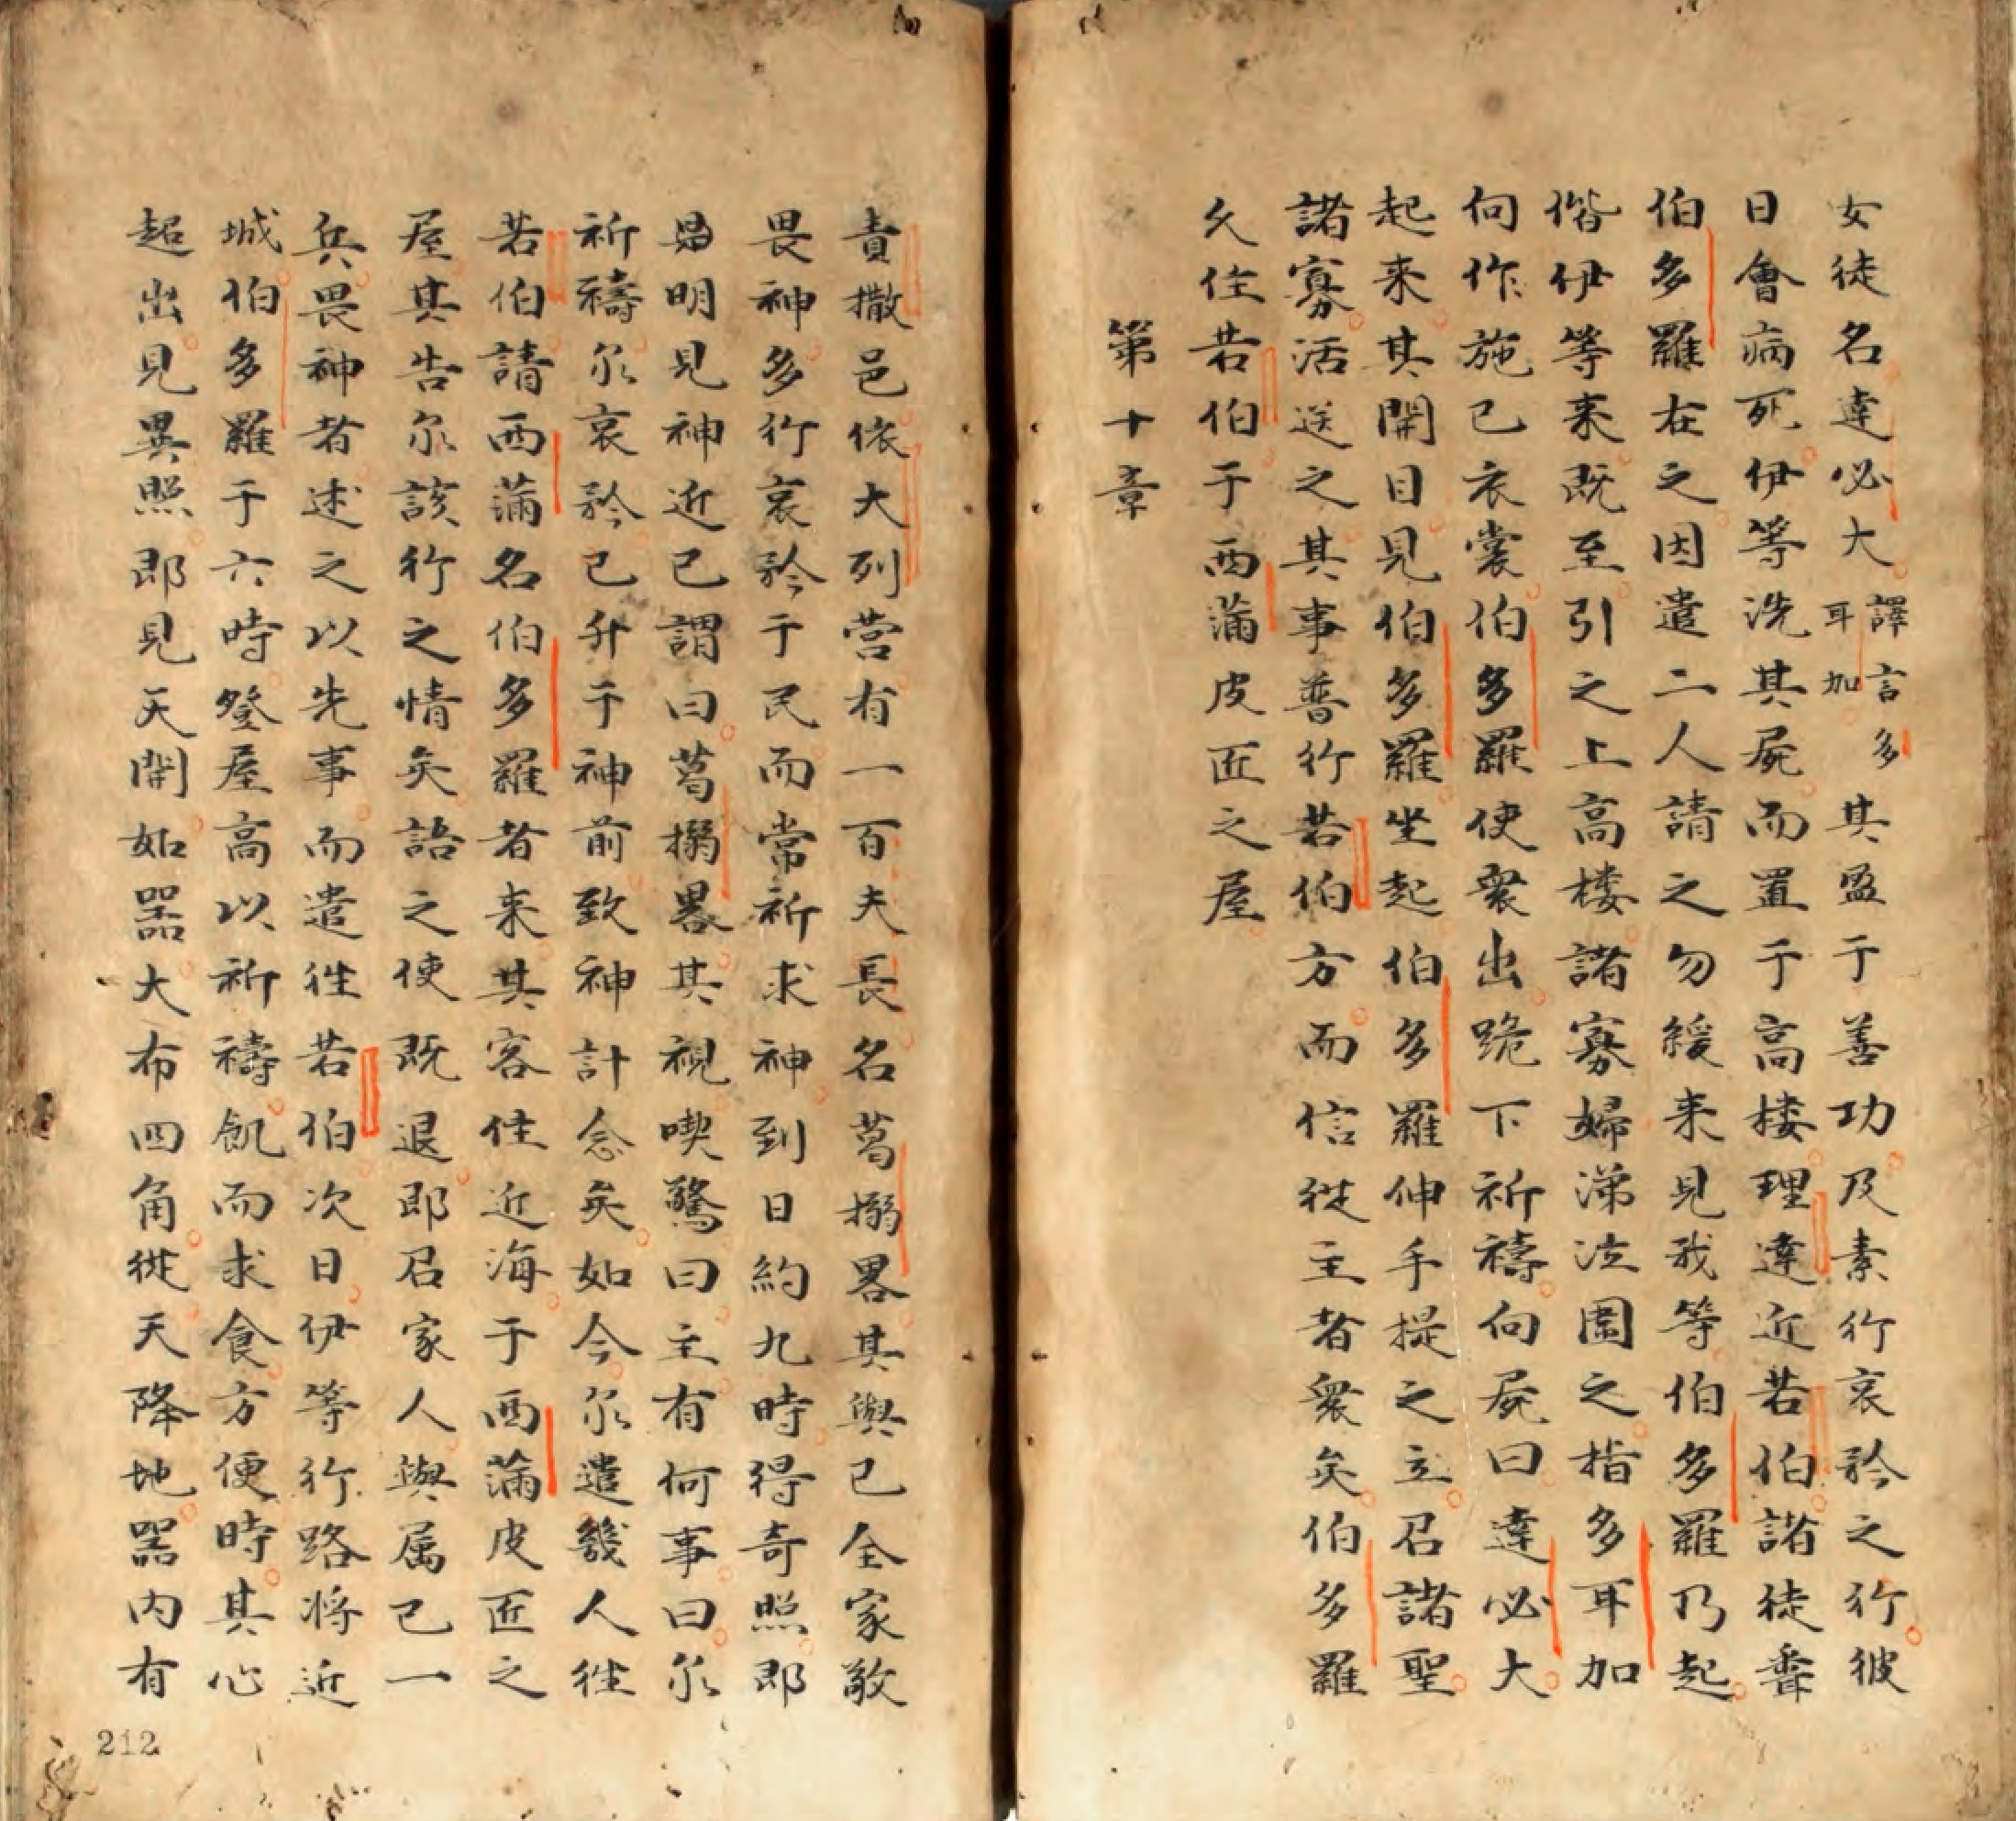 女徒名達必大譯言多耳加其盈于善功及素行哀矜之行彼
日會病死伊等洗其屍而置于高楼理達近若伯諸徒聞
伯多羅在之因遣二人請之勿緩来見我等伯多羅乃起
偕伊等来既至引之上高楼諸寡婦涕泣圍之指多耳加
向作施己衣裳伯多羅使衆出跪下祈禱向屍曰達必大
起来其開目見伯多羅坐起伯多羅伸手提之立召諸聖
諸寡活送之其事普行若伯方而信従主者衆矣伯多羅
久住若伯于西蒲皮匠之屋
第十章
責撒邑依大列营有一百夫長名葛搦畧其與己全家敬
畏神多行哀矜于民而常祈求神到日約九時得奇照即
明見神近己謂曰葛搦畧其視喫驚曰主有何事曰尔
祈禱尔哀矜已升于神前致神計念矣如今尔遣幾人徃
若伯請西蒲名伯多羅者来其客住近海于西蒲皮匠之
屋其告尔該行之情矣語之使既退即召家人與属己一
兵畏神者述之以先事而遣徃若伯次日伊等行路将近
城伯多羅于六時登屋高以祈禱飢而求食方便時其心
超出見異照即見天開如器大布四角従天降地器内有
212